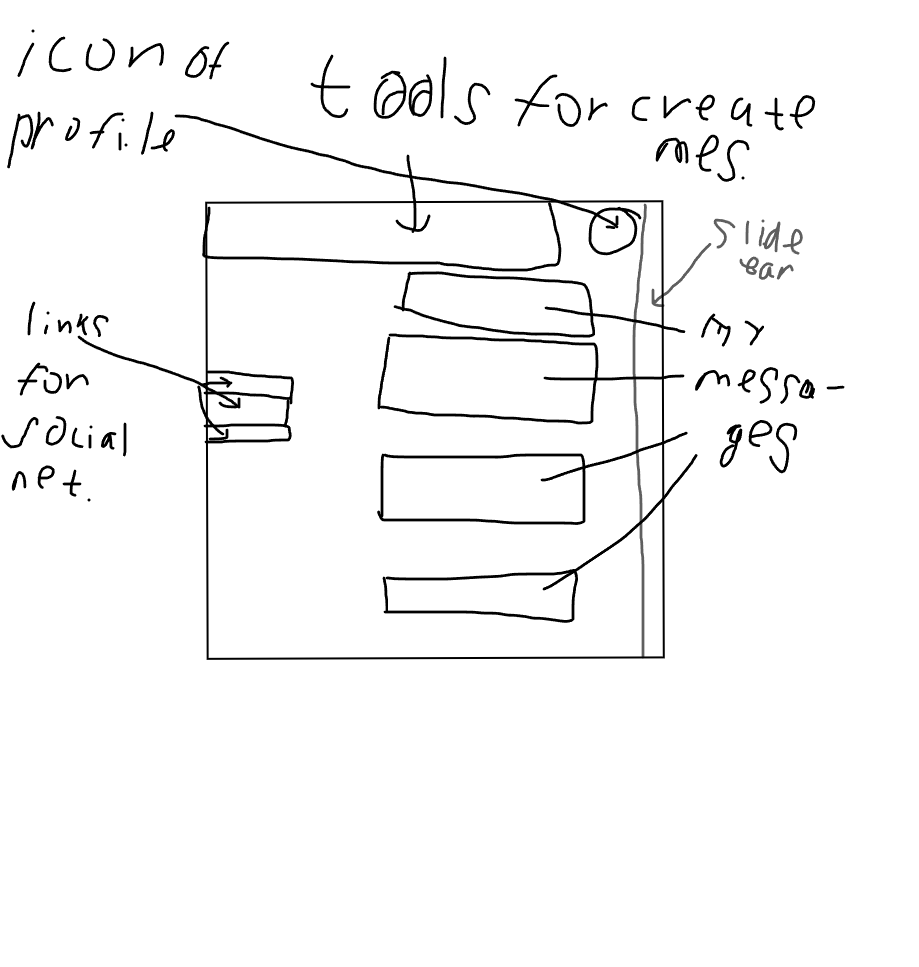 icon of
profile
tools for create
mes.
slide
bar
links
for
social
net.
my
messa-
ges